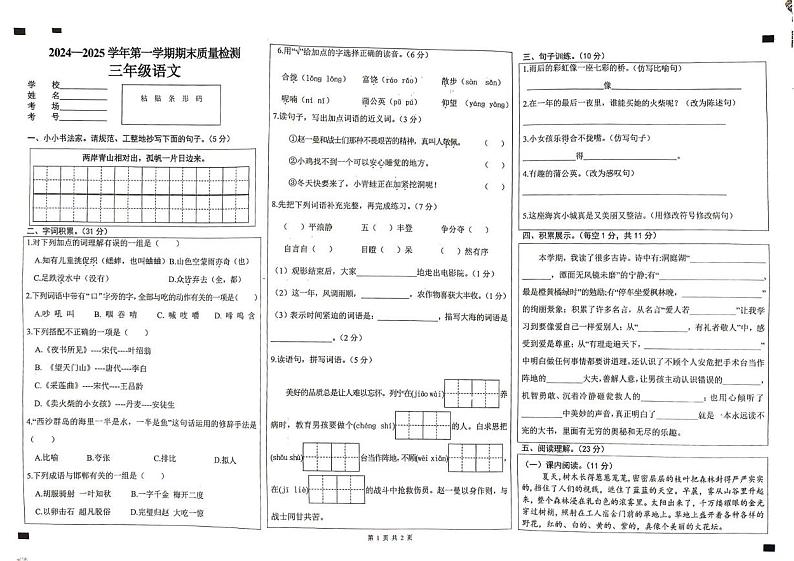 2024—2025学年第一学期期末质量检测
三年级语文
学 校
姓 名
考 场
考 号
粘 贴 条 形 码
一、小小书法家。请规范、工整地抄写下面的句子。(5分)
两岸青山相对出，孤帆一片日边来。
二、字词积累。(31分)
1.对下列加点的词理解有误的一组是（ ）
A.知有儿童挑促织（蟋蟀，也叫蛐蛐）B.山色空蒙雨亦奇（也）
C.足跌没水中（没有） D.众皆弃去（全，都）
2.下列词语中带有“口”字旁的字，全部与吃的动作有关的一项是（ ）
A.吵 吼 叫 B. 咽 吞 啃 C. 喊 哎 嚼 D. 啼 鸣 含
3.下列搭配不正确的一项是（ ）
A.《夜书所见》----宋代----叶绍翁
B.《望天门山》----唐代----李白
C.《采莲曲》----宋代----王昌龄
D.《卖火柴的小女孩》----丹麦----安徒生
4.“西沙群岛的海里一半是水，一半是鱼”这句话运用的修辞手法是
（ ）
A.比喻 B.夸张 C.排比 D.拟人
5.下列成语与邯郸有关的一组是（ ）
A.胡服骑射 一叶知秋 B.一字千金 梅开二度
C.以卵击石 超凡脱俗 D.完璧归赵 大吃一惊
6.用“√”给加点的字选择正确的读音。(6分)
合拢（lǒng lǒng） 富饶（ráo rǎo） 散步（sàn sǎn）
呢喃（ní nī） 蒲公英（pū pú） 仰望（yáng yǎng）
7.读句子，写出加点词语的近义词。(3分)
①赵一曼和战士们那种不畏艰苦的精神，真叫人敬佩。（ ）
②小鸡找不到一个可以安心睡觉的地方。（ ）
③冬天快要来了，小青蛙正在加紧挖洞呢！（ ）
8.先把下列词语补充完整，再完成练习。(7分)
（ ）平浪静 五（ ）丰登 争分夺（ ）
自言自（ ） 目瞪（ ）呆 （ ）然有序
（1）观影结束后，大家 地走出电影院。(1分)
（2）这一年，风调雨顺， ，农作物喜获大丰收。(1分)
（3）表示时间紧迫的词语是： ，描写大海的词语是
。(2分)
9.读语句，拼写词语。(5分)
美好的品质总是让人难以忘怀。列宁在(jiāo wài) 养
病时，教育男孩要做个(chéng shí) 的人。白求恩把
(shǒu shù) 台当作阵地，不顾(wēi xiǎn) ，
在(jī liè) 的战斗中抢救伤员。赵一曼以身作则，与
战士同甘共苦。
三、句子训练。(10分)
1.雨后的彩虹像一座七彩的桥。（仿写比喻句）
像 。
2.在一年的最后一夜里，谁能买她的火柴呢？（改为陈述句）
3.小女孩乐得合不拢嘴。（仿写句子）
得 。
4.有趣的蒲公英。（改为感叹句）
5.这座海宾小城真是又美丽又整洁。（用修改符号修改病句）
四、积累展示。(每空1分，共11分)
本学期，我读了很多古诗。诗中有:洞庭湖“
，潭面无风镜未磨”的宁静;有“ ，
最是橙黄橘绿时”的勉励;有“停车坐爱枫林晚，
的绚丽景象；积累了许多名言，从名言“爱人若 ”让我学
习到要像爱自己一样爱别人；从“ ，有礼者敬人”中，感
受到爱是尊重；从“有理走遍天下，
中明白做任何事情都要讲道理。还认识了不顾个人安危把手术台当作
阵地的 大夫，善解人意，让男孩主动认识错误的 ，
机智勇敢、沉着冷静砸瓮救人的 ；也用心倾听了
中美妙的声音，真正明白了 就是一本永远读不
完的大书，里面有无穷的奥秘和无尽的乐趣。
五、阅读理解。(23分)
（一）课内阅读。(11分)
夏天，树木长得葱葱笼笼，密密层层的枝叶把森林封得严严实实
的，挡住了人们的视线，遮住了蓝蓝的天空。早晨，雾从山谷里升起
来，整个森林浸在乳白色的浓雾里。太阳出来了，千万缕耀眼的金光
穿过树梢，照射在工人宿舍门前的草地上。草地上盛开着各种各样的
野花，红的、白的、黄的、紫的，真像个美丽的大花坛。
第 1 页 共 2 页